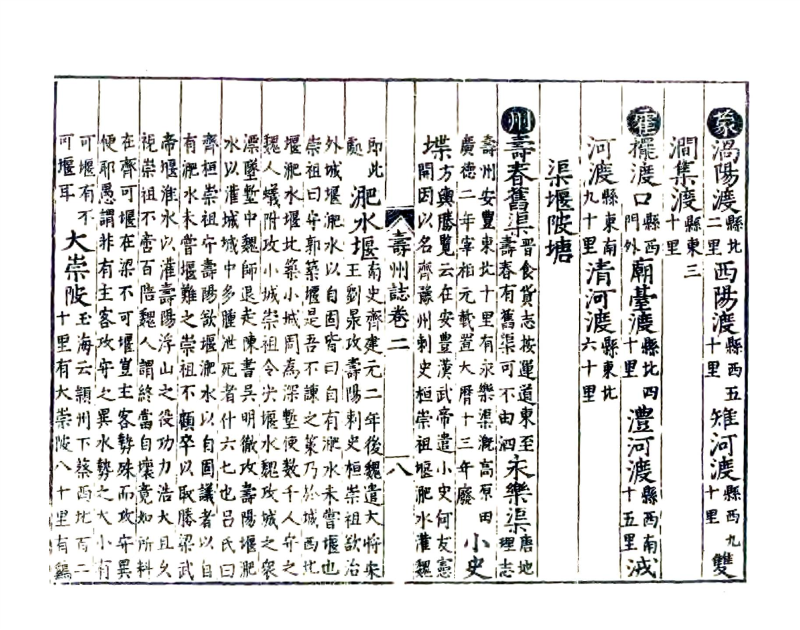 蒙 渦陽渡 縣北二里 西陽渡 縣西五十里 雉河渡 縣西九十里 雙
澗集渡 縣東三十里
霍 擺渡口 縣西門外 廟臺渡 縣北四十里 澧河渡 縣西南十五里 減
河渡 縣東南九十里 清河渡 縣東北六十里
渠堰陂塘
州 壽春舊渠 晉食貨志按運道東至壽春有舊渠可不由泗 永樂渠 唐地理志
壽州安豐東北十里有永樂渠溉高原田
廣德二年宰相元載置大曆十三年廢 小史
堞 方輿勝覽云在安豐漢武帝遣小史何友憲
開因以名齊豫州刺史桓崇祖堰淝水灌魏
壽州誌卷二 八
即此處 淝水堰 南史齊建元二年後魏遣大將宋
王劉昶攻壽陽刺史桓崇祖欲治
外城堰淝水以自固皆曰自有淝水未嘗堰也
崇祖曰守郭築堰是吾不諫之策乃於城西北
堰淝水堰北築小城周為深塹使數千人守之
魏人蟻附攻小城崇祖令決堰水魏攻城之衆
漂墜塹中魏師退走陳書吳明徹攻壽陽堰淝
水以灌城城中多腫泄死者什六七也呂氏曰
齊桓崇祖守壽陽欲堰淝水以自固議者以自
有淝水未嘗堰難之崇祖不顧卒以取勝梁武
帝堰淮水以灌壽陽浮山之役功力浩大且久
視崇祖不啻百陪魏人謂終當自壞竟如所料
在齊可堰在梁不可堰豈主客勢殊而攻守異
便耶愚謂非有主客攻守之異水勢之大小有
可堰有不可堰耳 大崇陂 玉海云潁州下蔡西北百二
十里有大崇陂八十里有鷄